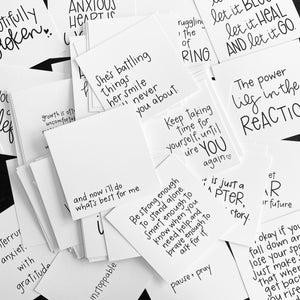 utifully
broken.
ANXIOUS
HEART is
let it BLO
let it HEAL
AND let it GO.
struggling
of the
RING
She's battling
things
her smile
ll never
you about.
The power
lies in the
REACTIO
growth is oft
uncomforta
Keep taking
time for
yourself until
URE YOU
again
and now i'll do
what's best for me
Be strong enough
to stand alone,
smart enough to
know when you
need help, and
brave enough to
ask for it.
is just a
APTER,
story.
AR
ur future
interrup
anxiety
with
gratitude
unstoppable
pause + pray
okay if you
fall down and
lose your sp
Just make s
that when
get back
you rise